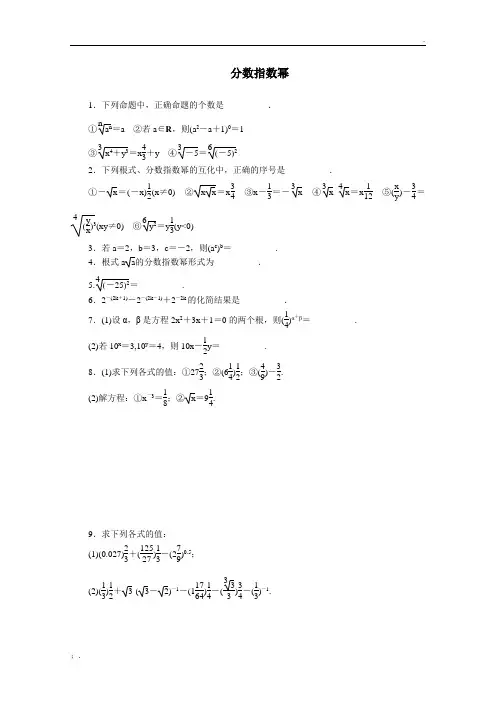 分数指数幂
1．下列命题中，正确命题的个数是__________．
①ⁿ√aⁿ＝a　②若a∈R，则(a²－a＋1)⁰＝1
③³√(x⁴＋y³)＝x^(4/3)＋y　④³√－5＝⁶√(－5)²
2．下列根式、分数指数幂的互化中，正确的序号是__________．
①－√x＝(－x)^(1/2)(x≠0)　②√(x√x)＝x^(3/4)　③x^(－1/3)＝－³√x　④³√x·⁴√x＝x^(1/12)　⑤(x/y)^(－3/4)＝
⁴√((y/x)³)(xy≠0)　⑥⁶√y²＝y^(1/3)(y<0)
3．若a＝2，b＝3，c＝－2，则(aᶜ)ᵇ＝__________．
4．根式a√a的分数指数幂形式为__________．
5.⁴√(－25)²＝__________．
6．2^(－(2k＋1))－2^(－(2k－1))＋2^(－2k)的化简结果是__________．
7．(1)设α，β是方程2x²＋3x＋1＝0的两个根，则(1/4)^(α＋β)＝__________．
(2)若10ˣ＝3,10ʸ＝4，则10x－1/2y＝__________．
8．(1)求下列各式的值：①27^(2/3)；②(6 1/4)^(1/2)；③(4/9)^(－3/2).
(2)解方程：①x⁻³＝1/8；②√x＝9^(1/4).
9．求下列各式的值：
(1)(0.027)^(2/3)＋(125/27)^(1/3)－(2 7/9)^0.5；
(2)(1/3)^(1/2)＋√3·(√3－√2)⁻¹－(1 17/64)^(1/4)－(³√3/3)^(3/4)－(1/3)⁻¹.
；.